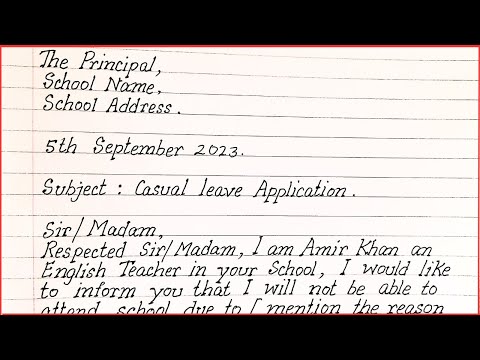 The Principal,
School Name,
School Address.
5th September 2023.
Subject : Casual leave Application.
Sir/Madam,
Respected Sir/Madam, I am Amir Khan an
English Teacher in your School, I would like
to inform you that I will not be able to
attend school due to [ mention the reason